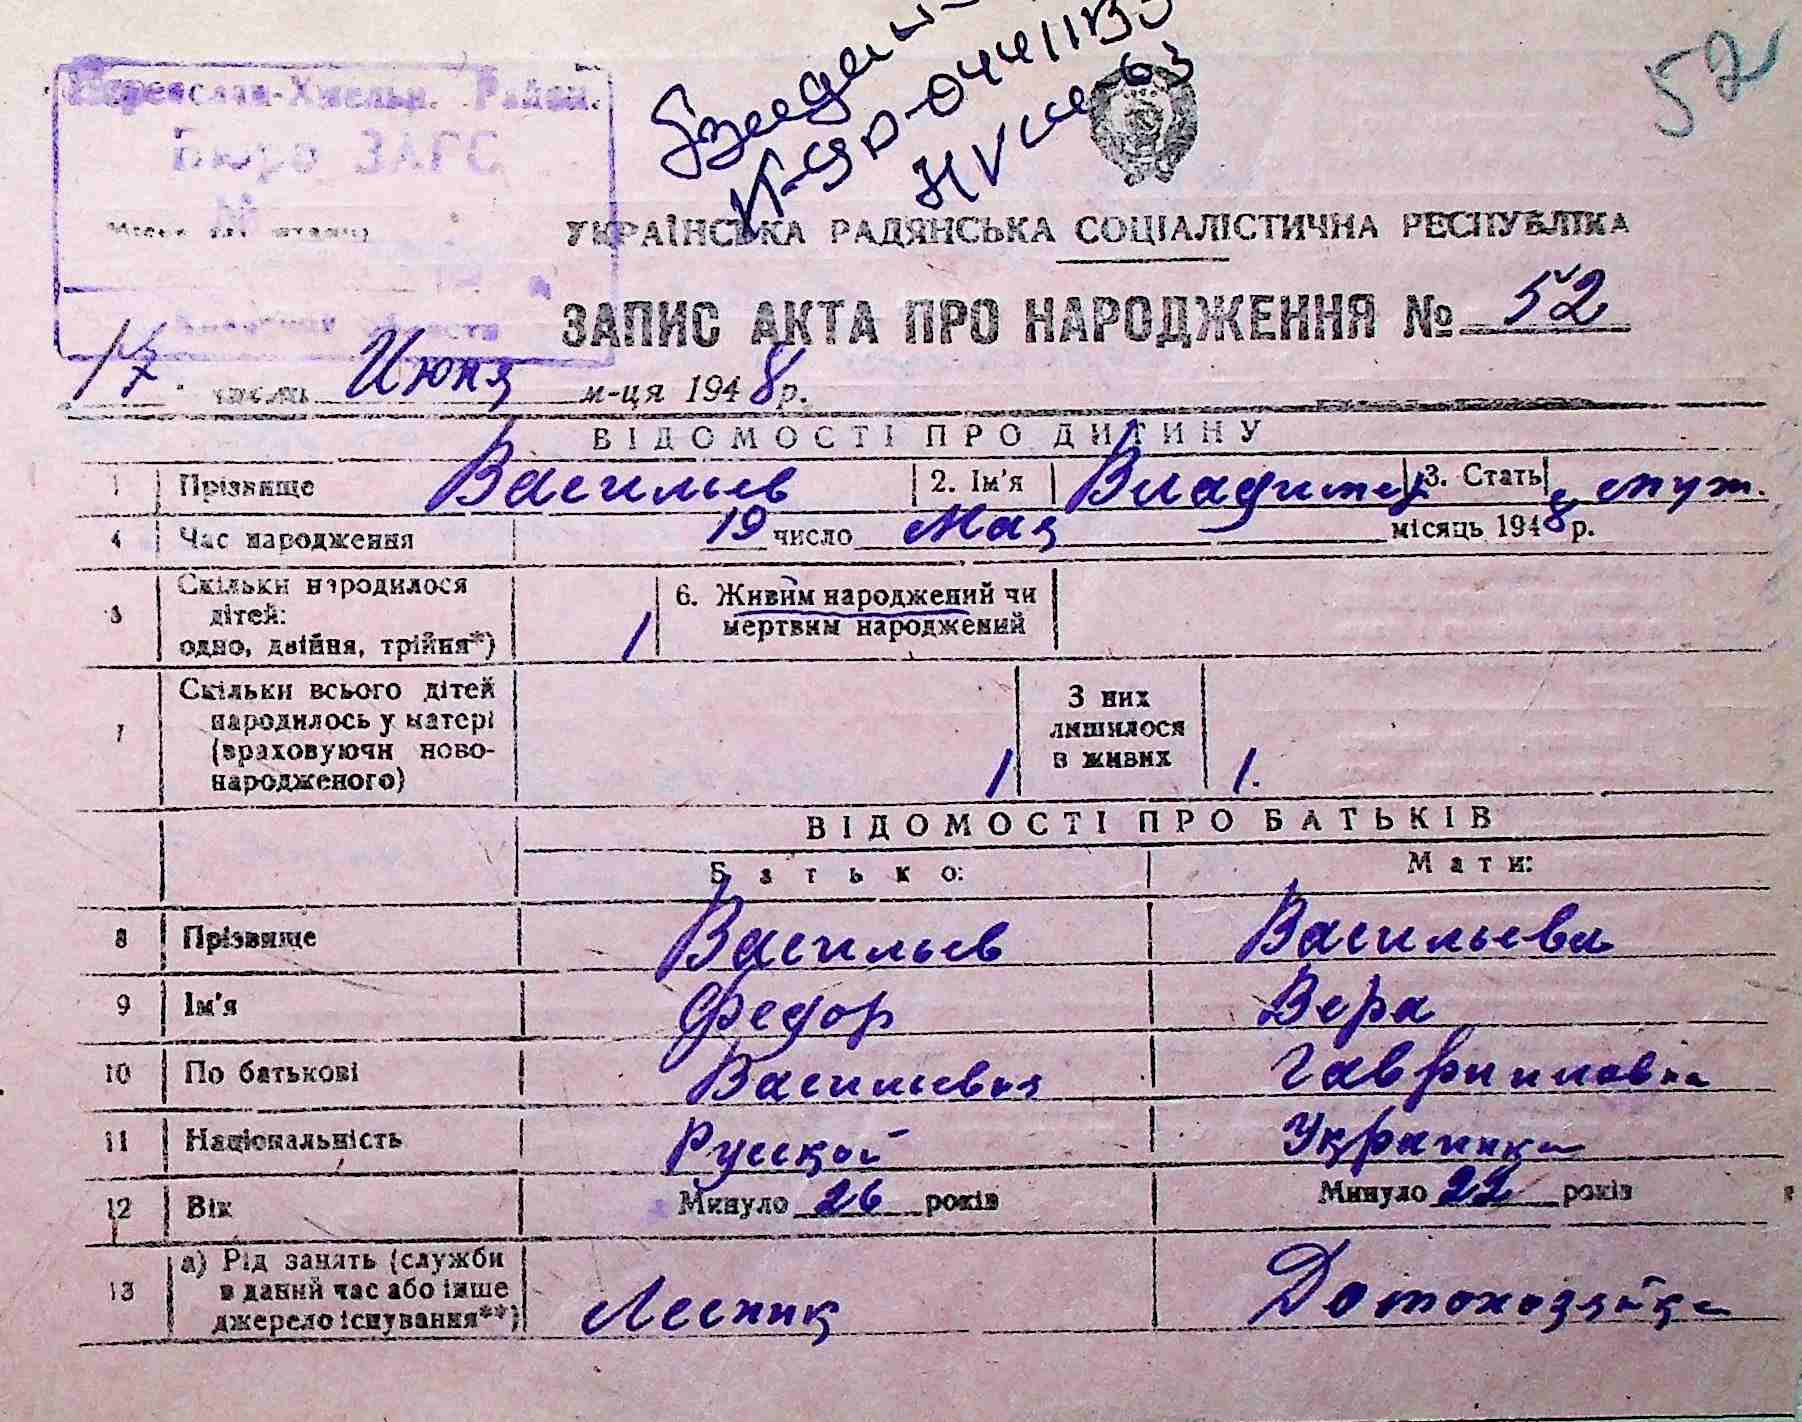 52
Переяслав-Хмельн. Район.
Бюро ЗАГС
№
УКРАЇНСЬКА РАДЯНСЬКА СОЦІАЛІСТИЧНА РЕСПУБЛІКА
ЗАПИС АКТА ПРО НАРОДЖЕННЯ № 52
17 числа Июня м-ця 1948 р.
ВІДОМОСТІ ПРО ДИТИНУ
1 Прізвище Васильев 2. Ім'я Владимир 3. Стать муж.
4 Час народження 19 число Мая місяць 1948 р.
5 Скільки народилося
дітей:
одно, двійня, трійня*) 1
6. Живим народжений чи
мертвим народжений
7 Скільки всього дітей
народилось у матері
(враховуючи ново-
народженого) 1
З них
лишилося
в живих 1.
ВІДОМОСТІ ПРО БАТЬКІВ
Батько: Мати:
8 Прізвище Васильев Васильева
9 Ім'я Федор Вера
10 По батькові Васильевич Гавриловна
11 Національність Руской Украинка
12 Вік Минуло 26 років Минуло 22 років
13 а) Рід занять (служби
в даний час або інше
джерело існування**) Лесник Домохозяйка